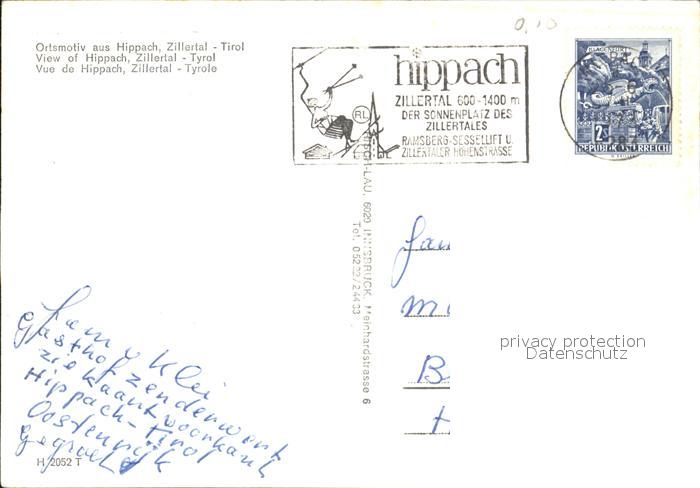 Ortsmotiv aus Hippach, Zillertal - Tirol
View of Hippach, Zillertal - Tyrol
Vue de Hippach, Zillertal - Tyrole
0,10
hippach
ZILLERTAL 600-1400 m
DER SONNENPLATZ DES
ZILLERTALES
RAMSBERG-SESSELLIFT U.
ZILLERTALER HÖHENSTRASSE
RL
KLAGENFURT
2S
REPUBLIK ÖSTERREICH
LAU, 6020 INNSBRUCK, Meinhardstrasse 6
Tel. 05222/24433
Fam
M
B
H
privacy protection
Datenschutz
Fam v Klei
Gasthof zenderwert
zie kaart voorkant
Hippach-Tirol
Oostenrijk
H 2052 T